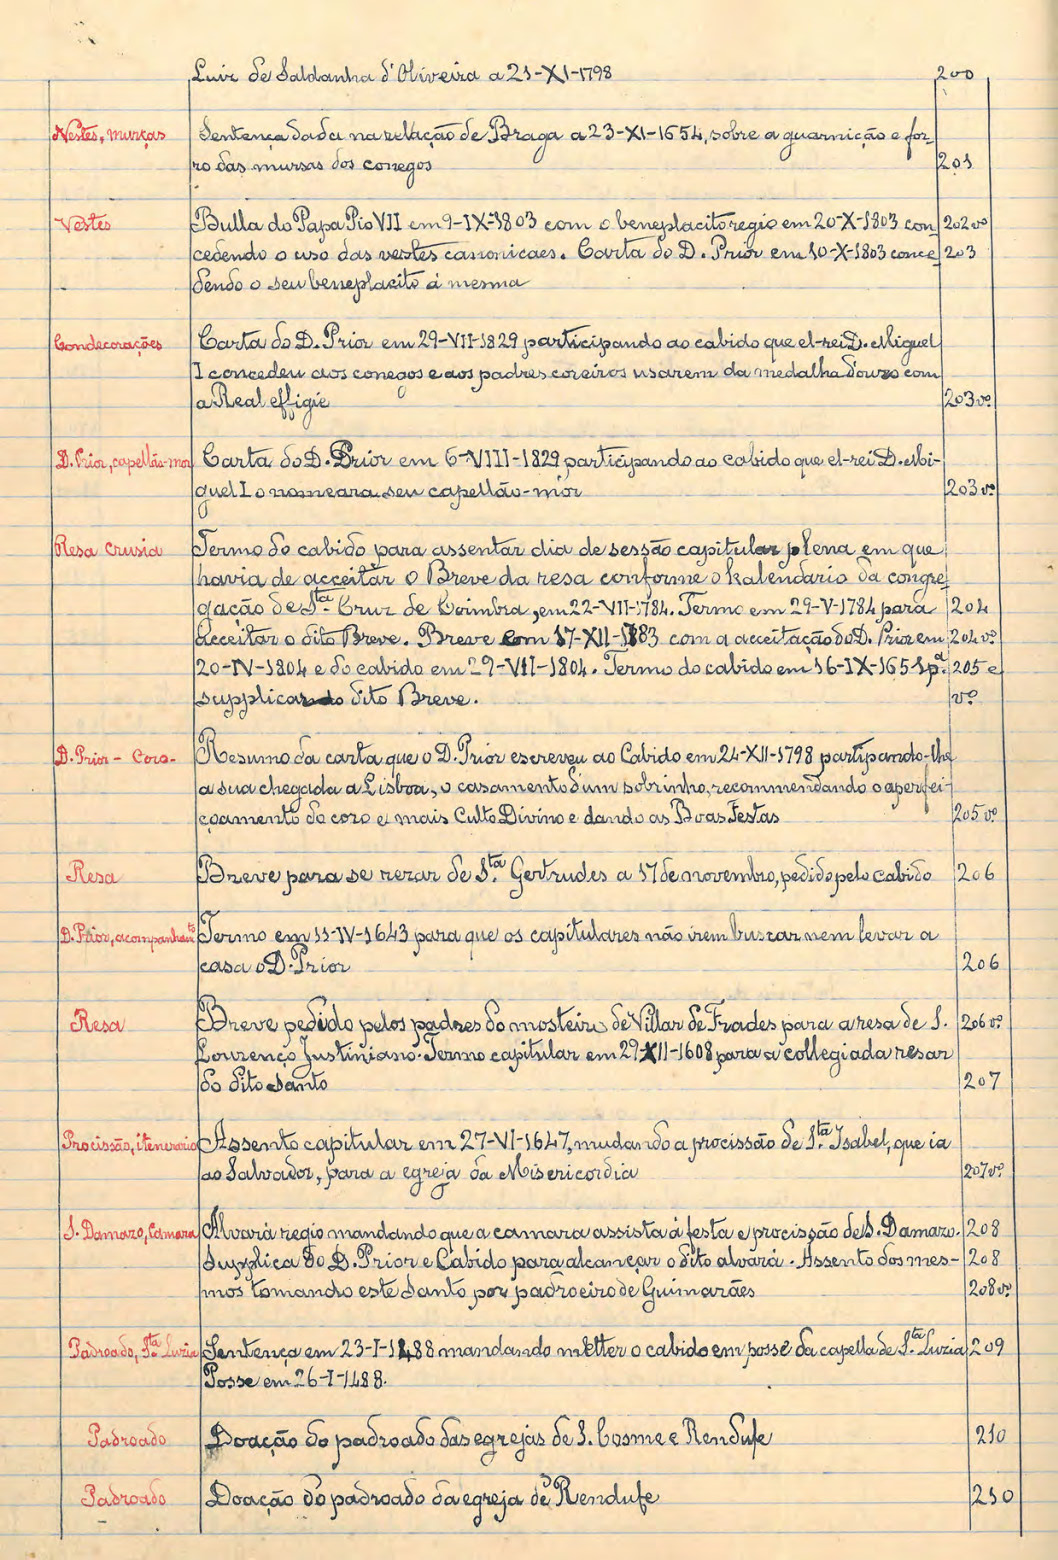 Luiz de Saldanha d'Oliveira a 21-XI-1798 200
Vestes, murças Sentença dada na relação de Braga a 23-XI-1654, sobre a guarnição e for-
ro das mursas dos conegos 201
Vestes Bulla do Papa Pio VII em 9-IX-1803 com o beneplacito regio em 20-X-1803 con 202 vº
cedendo o uso das vestes canonicaes. Carta do D. Prior em 10-X-1803 conce 203
dendo o seu beneplacito á mesma
Condecorações Carta do D. Prior em 29-VII-1829 participando ao cabido que el-rei D. Miguel
I concedeu aos conegos e aos padres coreiros usarem da medalha d'ouro com
a Real effigie 203 vº
D. Prior, capellão-mor Carta do D. Prior em 6-VIII-1829 participando ao cabido que el-rei D. Mi-
guel I o nomeara seu capellão-mór 203 vº
Resa crusia Termo do cabido para assentar dia de sessão capitular plena em que
havia de acceitar o Breve da resa conforme o kalendario da congre
gação de Sta. Cruz de Coimbra, em 22-VII-1784. Termo em 29-V-1784 para 204
acceitar o dito Breve. Breve em 17-XII-1783 com a acceitação do D. Prior em 204 vº
20-IV-1804 e do cabido em 29-VII-1804. Termo do cabido em 16-IX-1651 pª. 205 e
supplicar do dito Breve. vº
D. Prior - Coro- Resumo da carta que o D. Prior escreveu ao Cabido em 24-XII-1798 partipando-lhe
a sua chegada a Lisboa, o casamento d'um sobrinho, recommendando o aperfei-
çoamento do coro e mais Culto Divino e dando as Boas Festas 205 vº
Resa Breve para se rezar de Sta. Gertrudes a 17 de novembro, pedido pelo cabido 206
D. Prior, acompanhamto Termo em 11-IV-1643 para que os capitulares não irem buscar nem levar a
casa o D. Prior 206
Resa Breve pedido pelos padres do mosteiro de Villar de Frades para a resa de S. 206 vº
Lourenço Justiniano. Termo capitular em 29-XII-1608 para a collegiada resar
do dito Santo 207
Procissão, itenerario Assento capitular em 27-VI-1647, mudando a procissão de Sta. Isabel, que ia
ao Salvador, para a egreja da Misericordia 207 vº
S. Damazo, Camara Alvará regio mandando que a camara assista á festa e procissão de S. Damazo. 208
Supplica do D. Prior e Cabido para alcançar o dito alvará. Assento dos mes- 208
mos tomando este Santo por padroeiro de Guimarães 208 vº
Padroado, Sta. Luzia Sentença em 23-I-1488 mandando metter o cabido em posse da capella de Sta. Luzia 209
Posse em 26-I-1488.
Padroado Doação do padroado das egrejas de S. Cosme e Rendufe 210
Padroado Doação do padroado da egreja de Rendufe 210